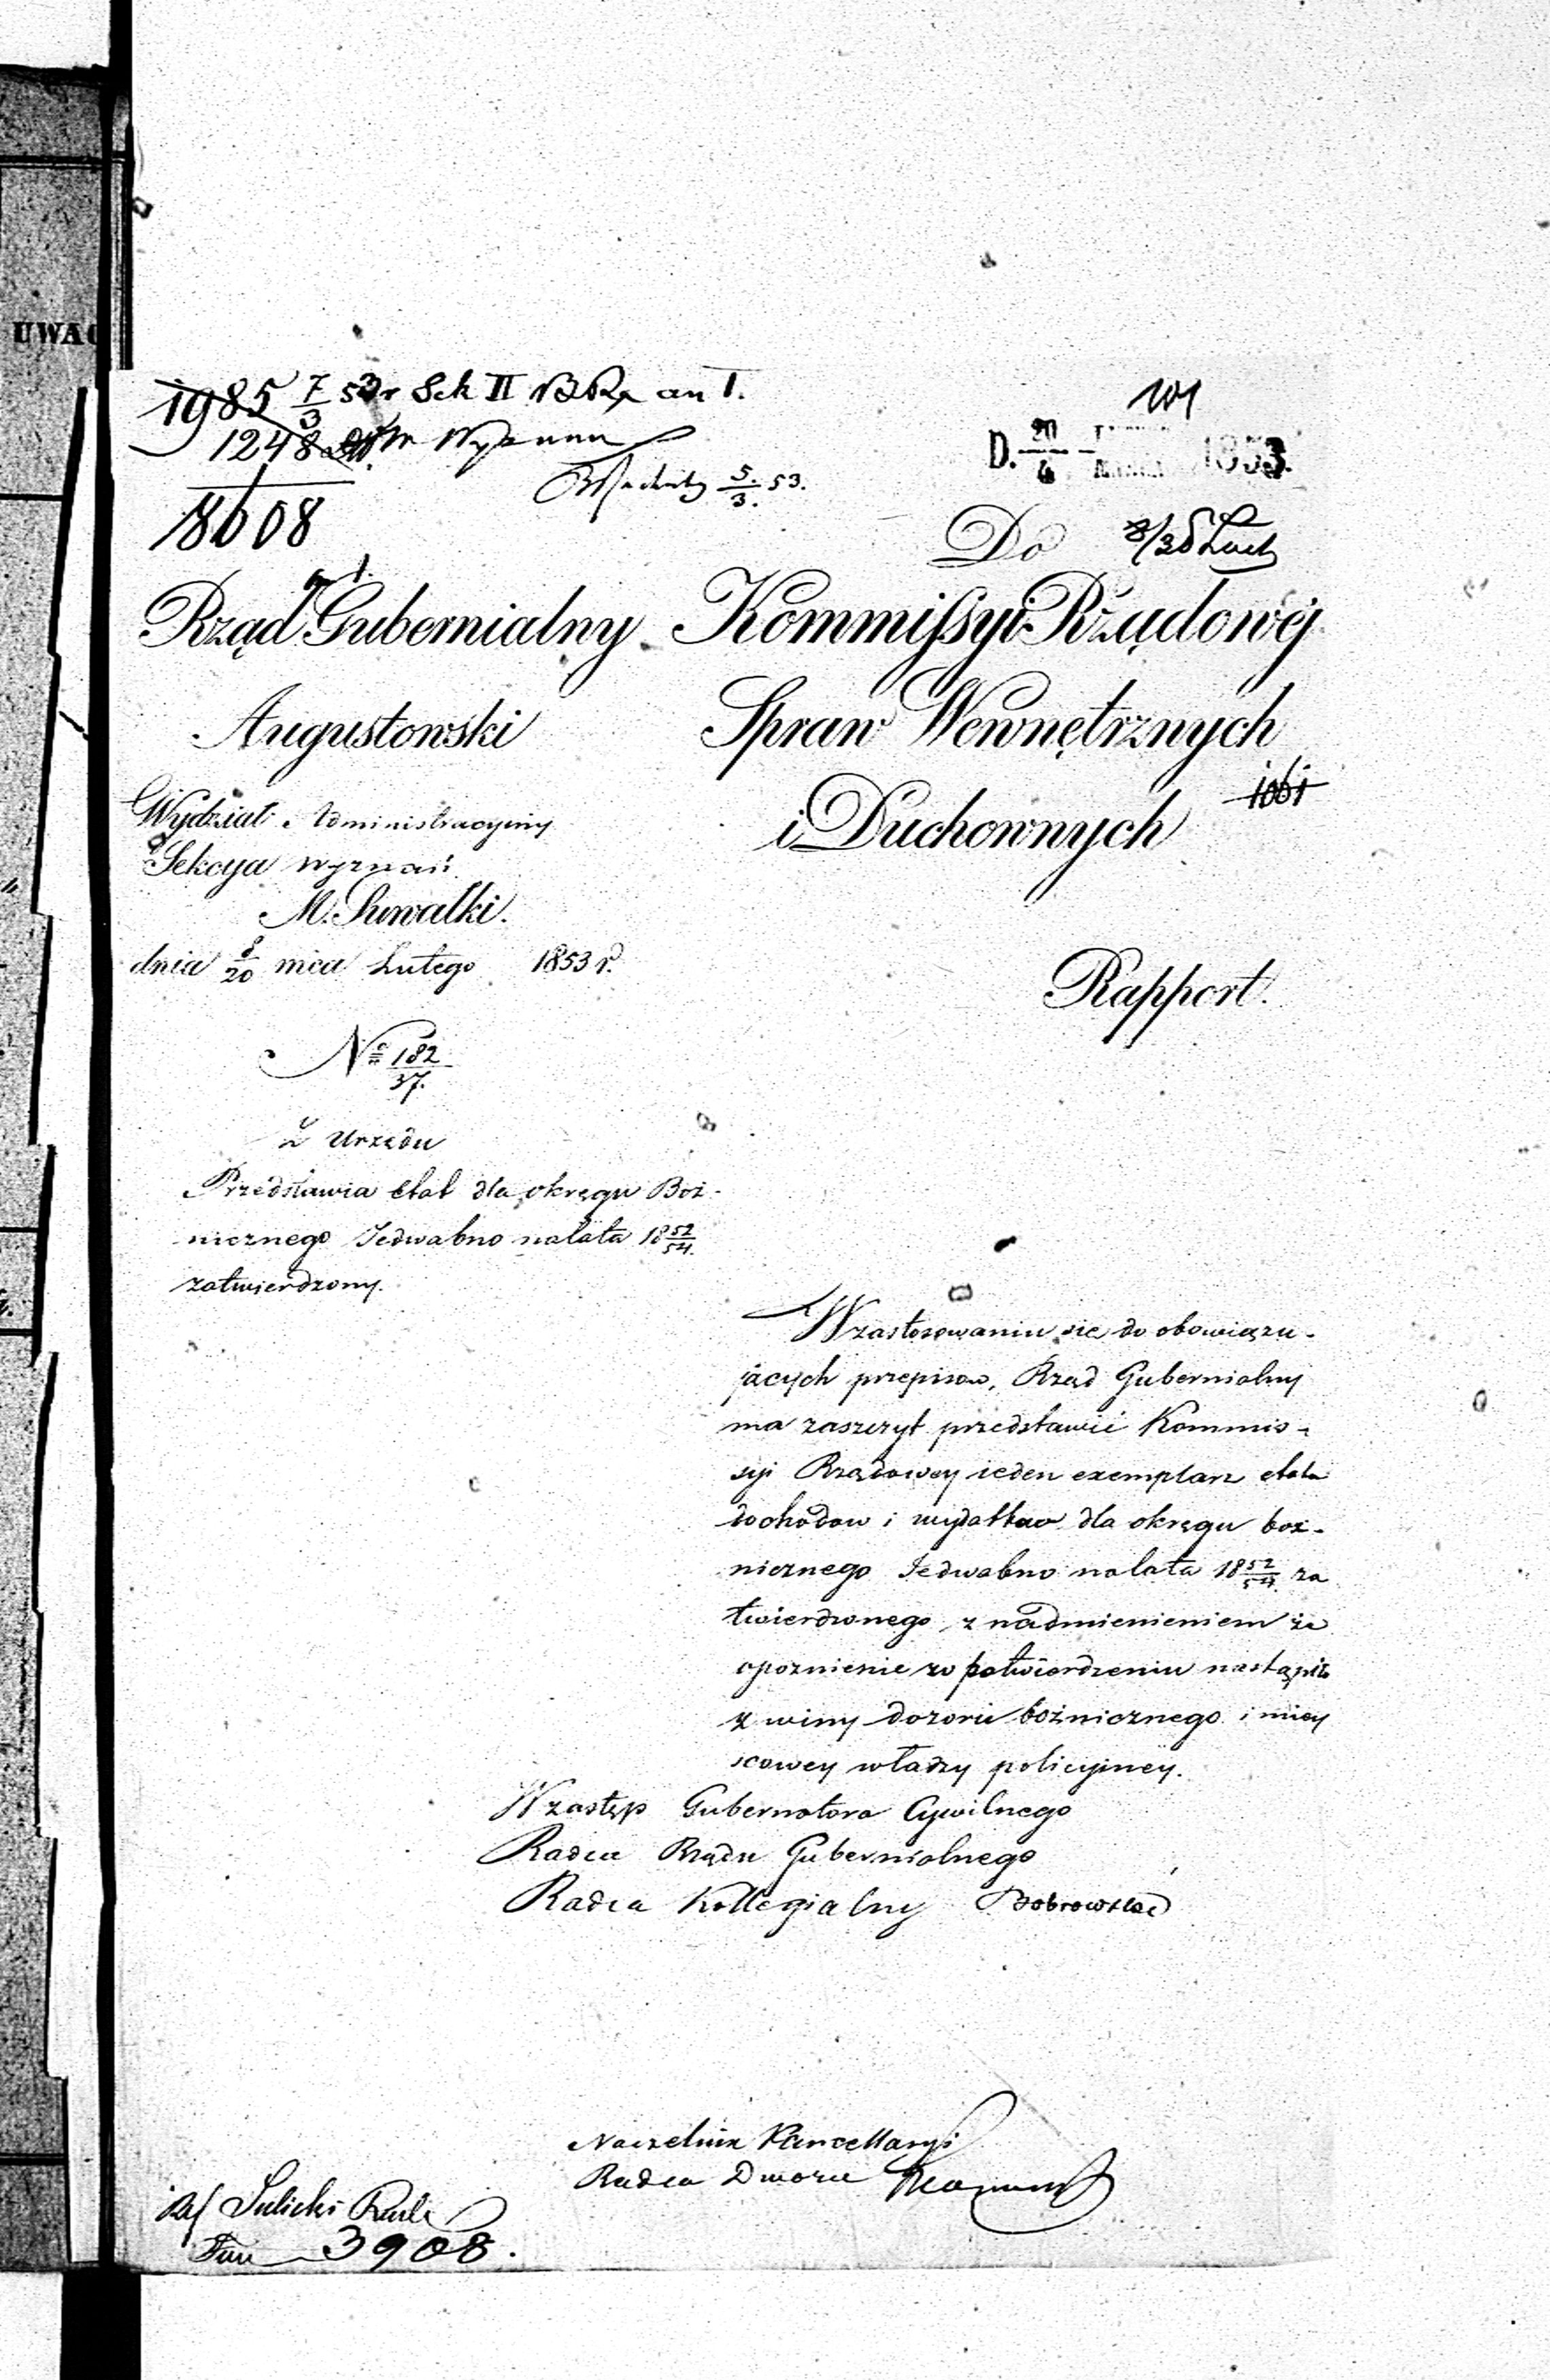 UWAG
1985 7/3 53 r Sek II
1248
18608
5/3. 53.
101
D. 20/4 1853.
Do
Rząd Gubernialny
Augustowski
Kommissyi Rządowéj
Spraw Wewnętrznych
i Duchownych
1061
Wydział Administracyiny
Sekcya Wyznań
M. Suwałki.
dnia 8/20 mca Lutego 1853 r.
Rapport.
No 182/37.
Z Urzędu
Przedstawia etat dla okręgu Boż-
nicznego Jedwabno na lata 18 52/54.
zatwierdzony.
W zastosowaniu się do obowiązu-
jących przepisow, Rząd Gubernialny
ma zaszczyt przedstawić Kommis-
syi Rządowey ieden exemplarz etatu
dochodow i wydatkow dla okręgu boż-
nicznego Jedwabno na lata 18 52/54. za
twierdzonego z nadmienieniem że
opoznienie w potwierdzeniu nastąpiło
z winy dozoru bożnicznego i miey
scowey władzy policyiney.
W zastęp Gubernatora Cywilnego
Radca Rządu Gubernialnego
Radca Kollegialny Dobrowolski
Naczelnik Kancellaryi
Radca Dworu
Sulicki
3908.